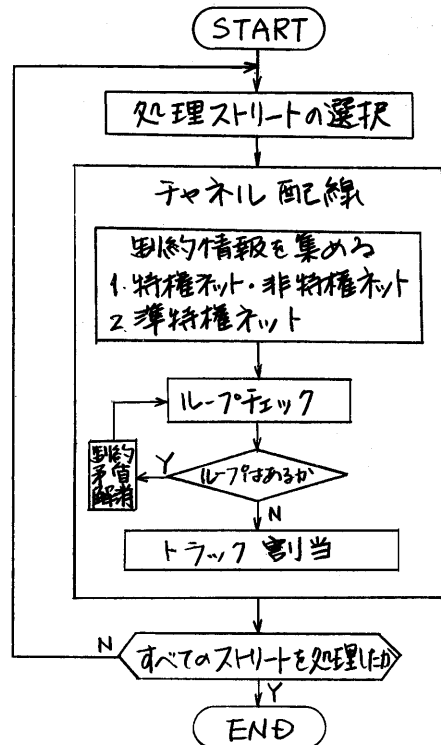 START
処理ストリートの選択
チャネル配線
制約情報を集める
1. 特権ネット・非特権ネット
2. 準特権ネット
ループチェック
制約
矛盾
解消
Y
ループはあるか
N
トラック割当
N
すべてのストリートを処理したか
Y
END